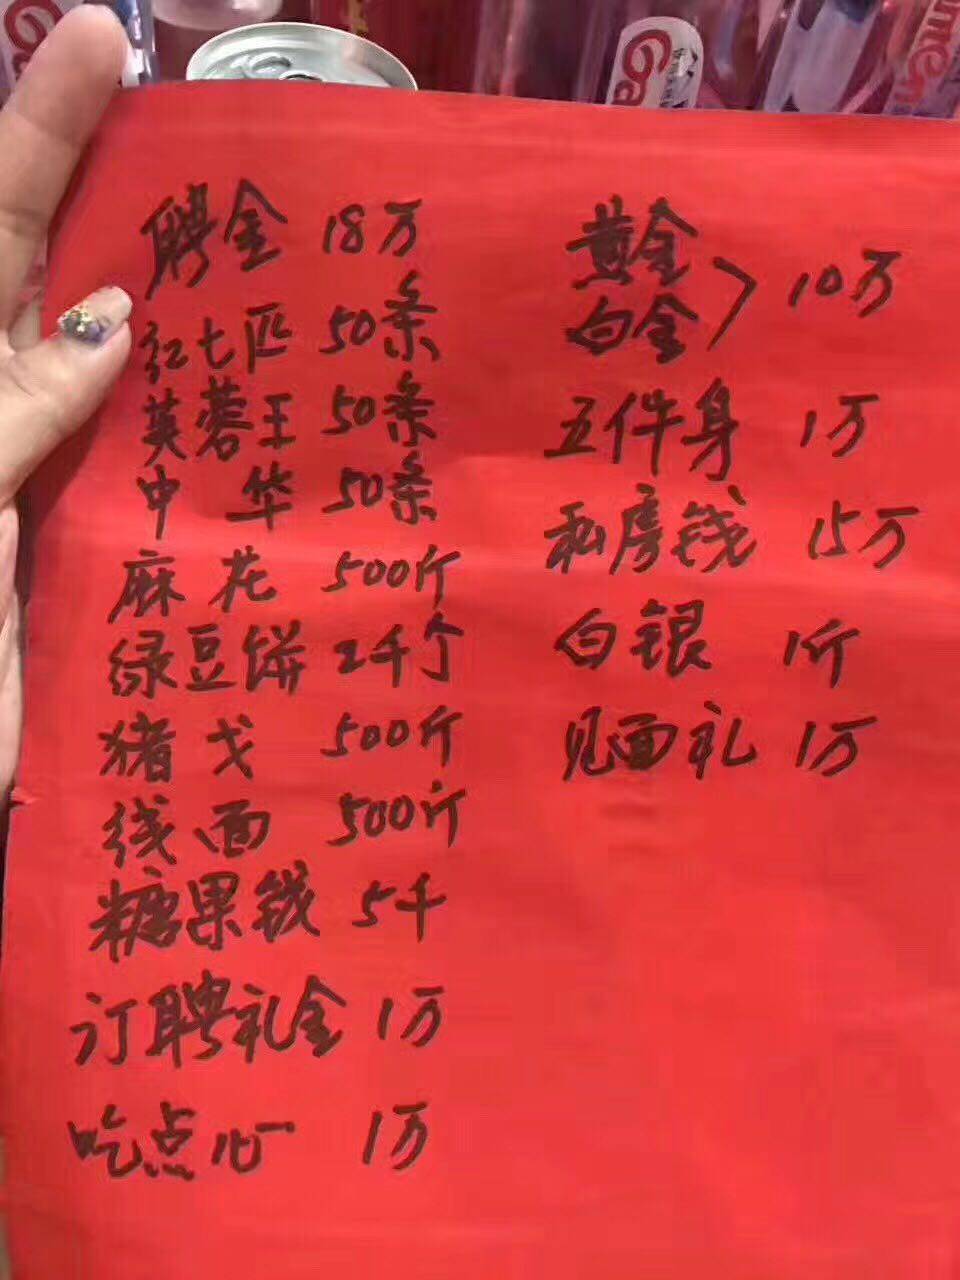 聘金 18万
红七匹 50条
芙蓉王 50条
中华 50条
麻花 500斤
绿豆饼 2千个
猪戈 500斤
线面 500斤
糖果钱 5千
订聘礼金 1万
吃点心 1万
黄金
白金 > 10万
五件身 1万
私房钱 15万
白银 1斤
见面礼 1万